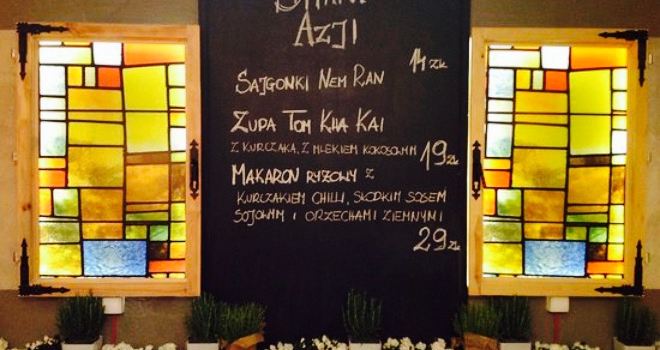 AZJI
14 ZŁ
SAJGONKI NEM RAN
ZUPA TOM KHA KAI
Z KURCZAKA, Z MLEKIEM KOKOSOWYM 19 ZŁ
MAKARON RYŻOWY Z
KURCZAKIEM CHILLI, SŁODKIM SOSEM
SOJOWYM I ORZECHAMI ZIEMNYMI
29 ZŁ